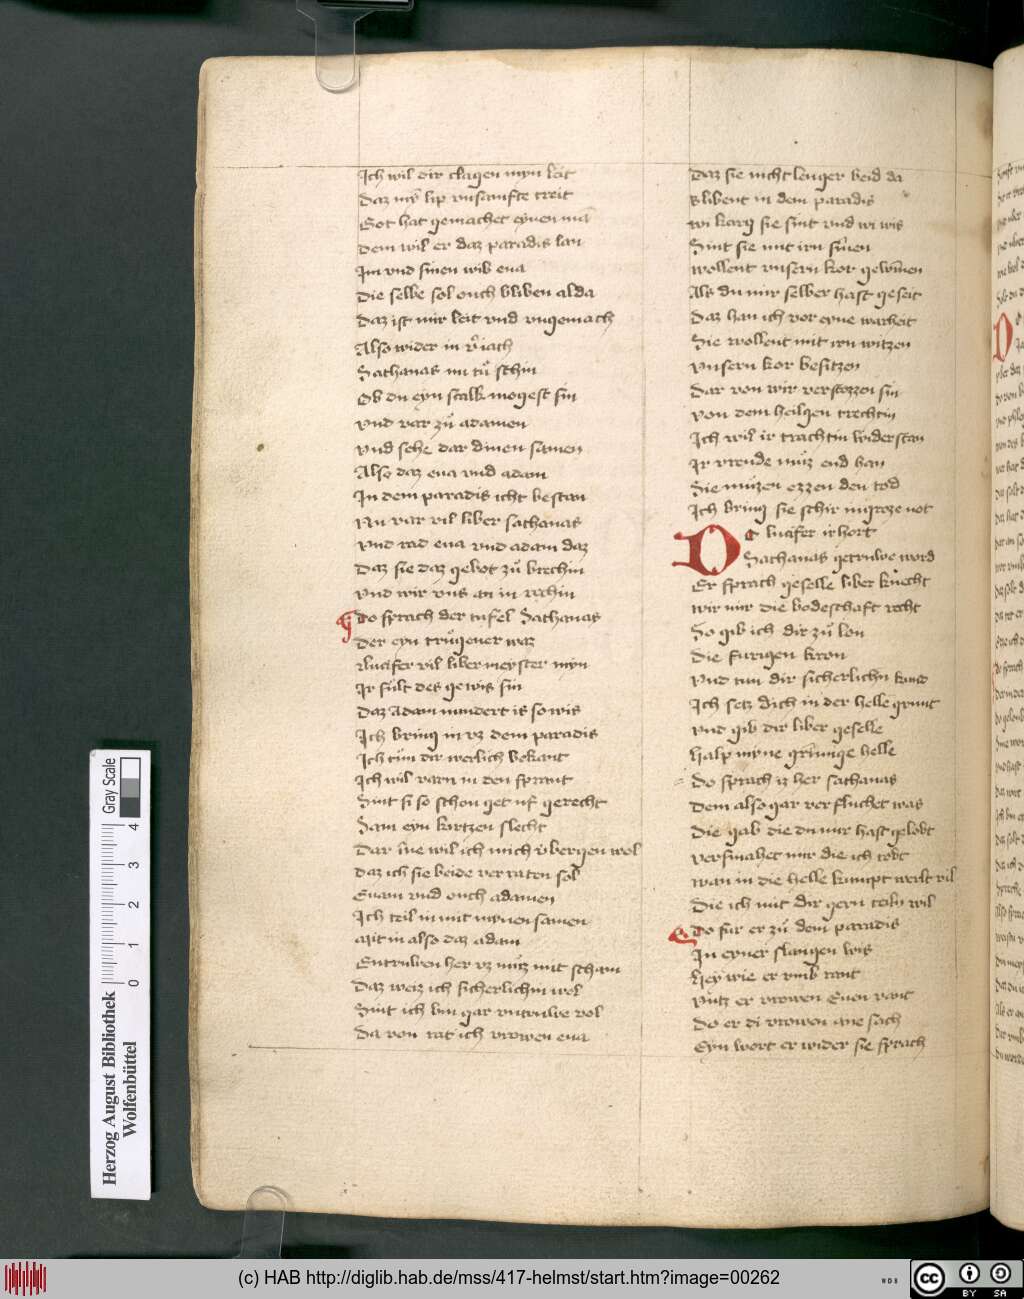 Ich wil dir clagen myn leit
Daz mȳ lip vnsanfte treit
Got hat gemachet eynen mā
Dem wil er daz paradis lan
Im vnd sinen wib eua
Die selbe sol ouch bliben alda
Daz ist mir leit vnd vngemach
Also wider in
Sathanas nu tů schin
Ob du eyn scalk mogest sin
vnd var zů adamen
vnd sehe dar dinen samen
Also daz eua vnd adam
In dem paradis icht bestan
Nu var vil liber sathanas
vnd rad eua vnd adam daz
Daz sie daz gebot zů brechin
vnd wir vns an in rechin
Do sprach der tufel Sathanas
Der eyn trůgener waz
Lucifer vil liber meyster myn
Ir sult des gewis sin
Daz Adam nindert is so wis
Ich bring in vz dem paradis
Ich tůn dir werlich bekant
Ich wil varn in den
Sint si so schon get uf gerecht
Sam eyn kirtzen slecht
Dar īne wil ich mich v̄bergen wol
Daz ich sie beide verraten sol
Euam vnd ouch adamen
Ich teil in mit mynen samen
Mit in also daz adam
Entruwen her vz můz mit scham
Daz weiz ich sicherlichin wol
Sint ich bin gar vntruwe vol
Da von rat ich vrowen eua
Daz sie nicht lenger beid da
Blibent in dem paradis
wi karg sie sint vnd wi wis
Sint sie mit irn sīnen
wollent vnsern kor gewīnen
Als du mir selber hast geseit
Daz han ich vor eyne warheit
Sie wollent mit irn witzen
vnsern kor besitzen
Dar von wir verstozzen sin
von dem heilgen trechtin
Ich wil ir trachtin widerstan
Ir vreude můz end han
Sie můzen ezzen den tod
Ich bring sie schir in groze not
Do lucifer irhort
Sathanas getruwe word
Er sprach geselle liber knecht
wir mir die bodeschaft recht
So gib ich dir zů lon
Die furigen kron
vnd tun dir sicherlichn kund
Ich setz dich in der helle grunt
vnd gib dir liber geselle
halp myne grimige helle
Do sprach iz her sathanas
Dem also gar verfluchet was
Die gab die du mir hast gelobt
versmahet mir die ich tobt
wan in die helle kumpt werlt vil
Die ich mit dir gern teiln wil
Do fur er zů dem paradis
In eyner slangen wis
hey wie er vmb rant
vntz er vrowen Euen vant
Do er di vrowen ane sach
Eyn wort er wider sie sprach
Herzog August Bibliothek
Wolfenbüttel
0 1 2 3 4
Gray Scale
(c) HAB http://diglib.hab.de/mss/417-helmst/start.htm?image=00262
WDB
cc
BY SA